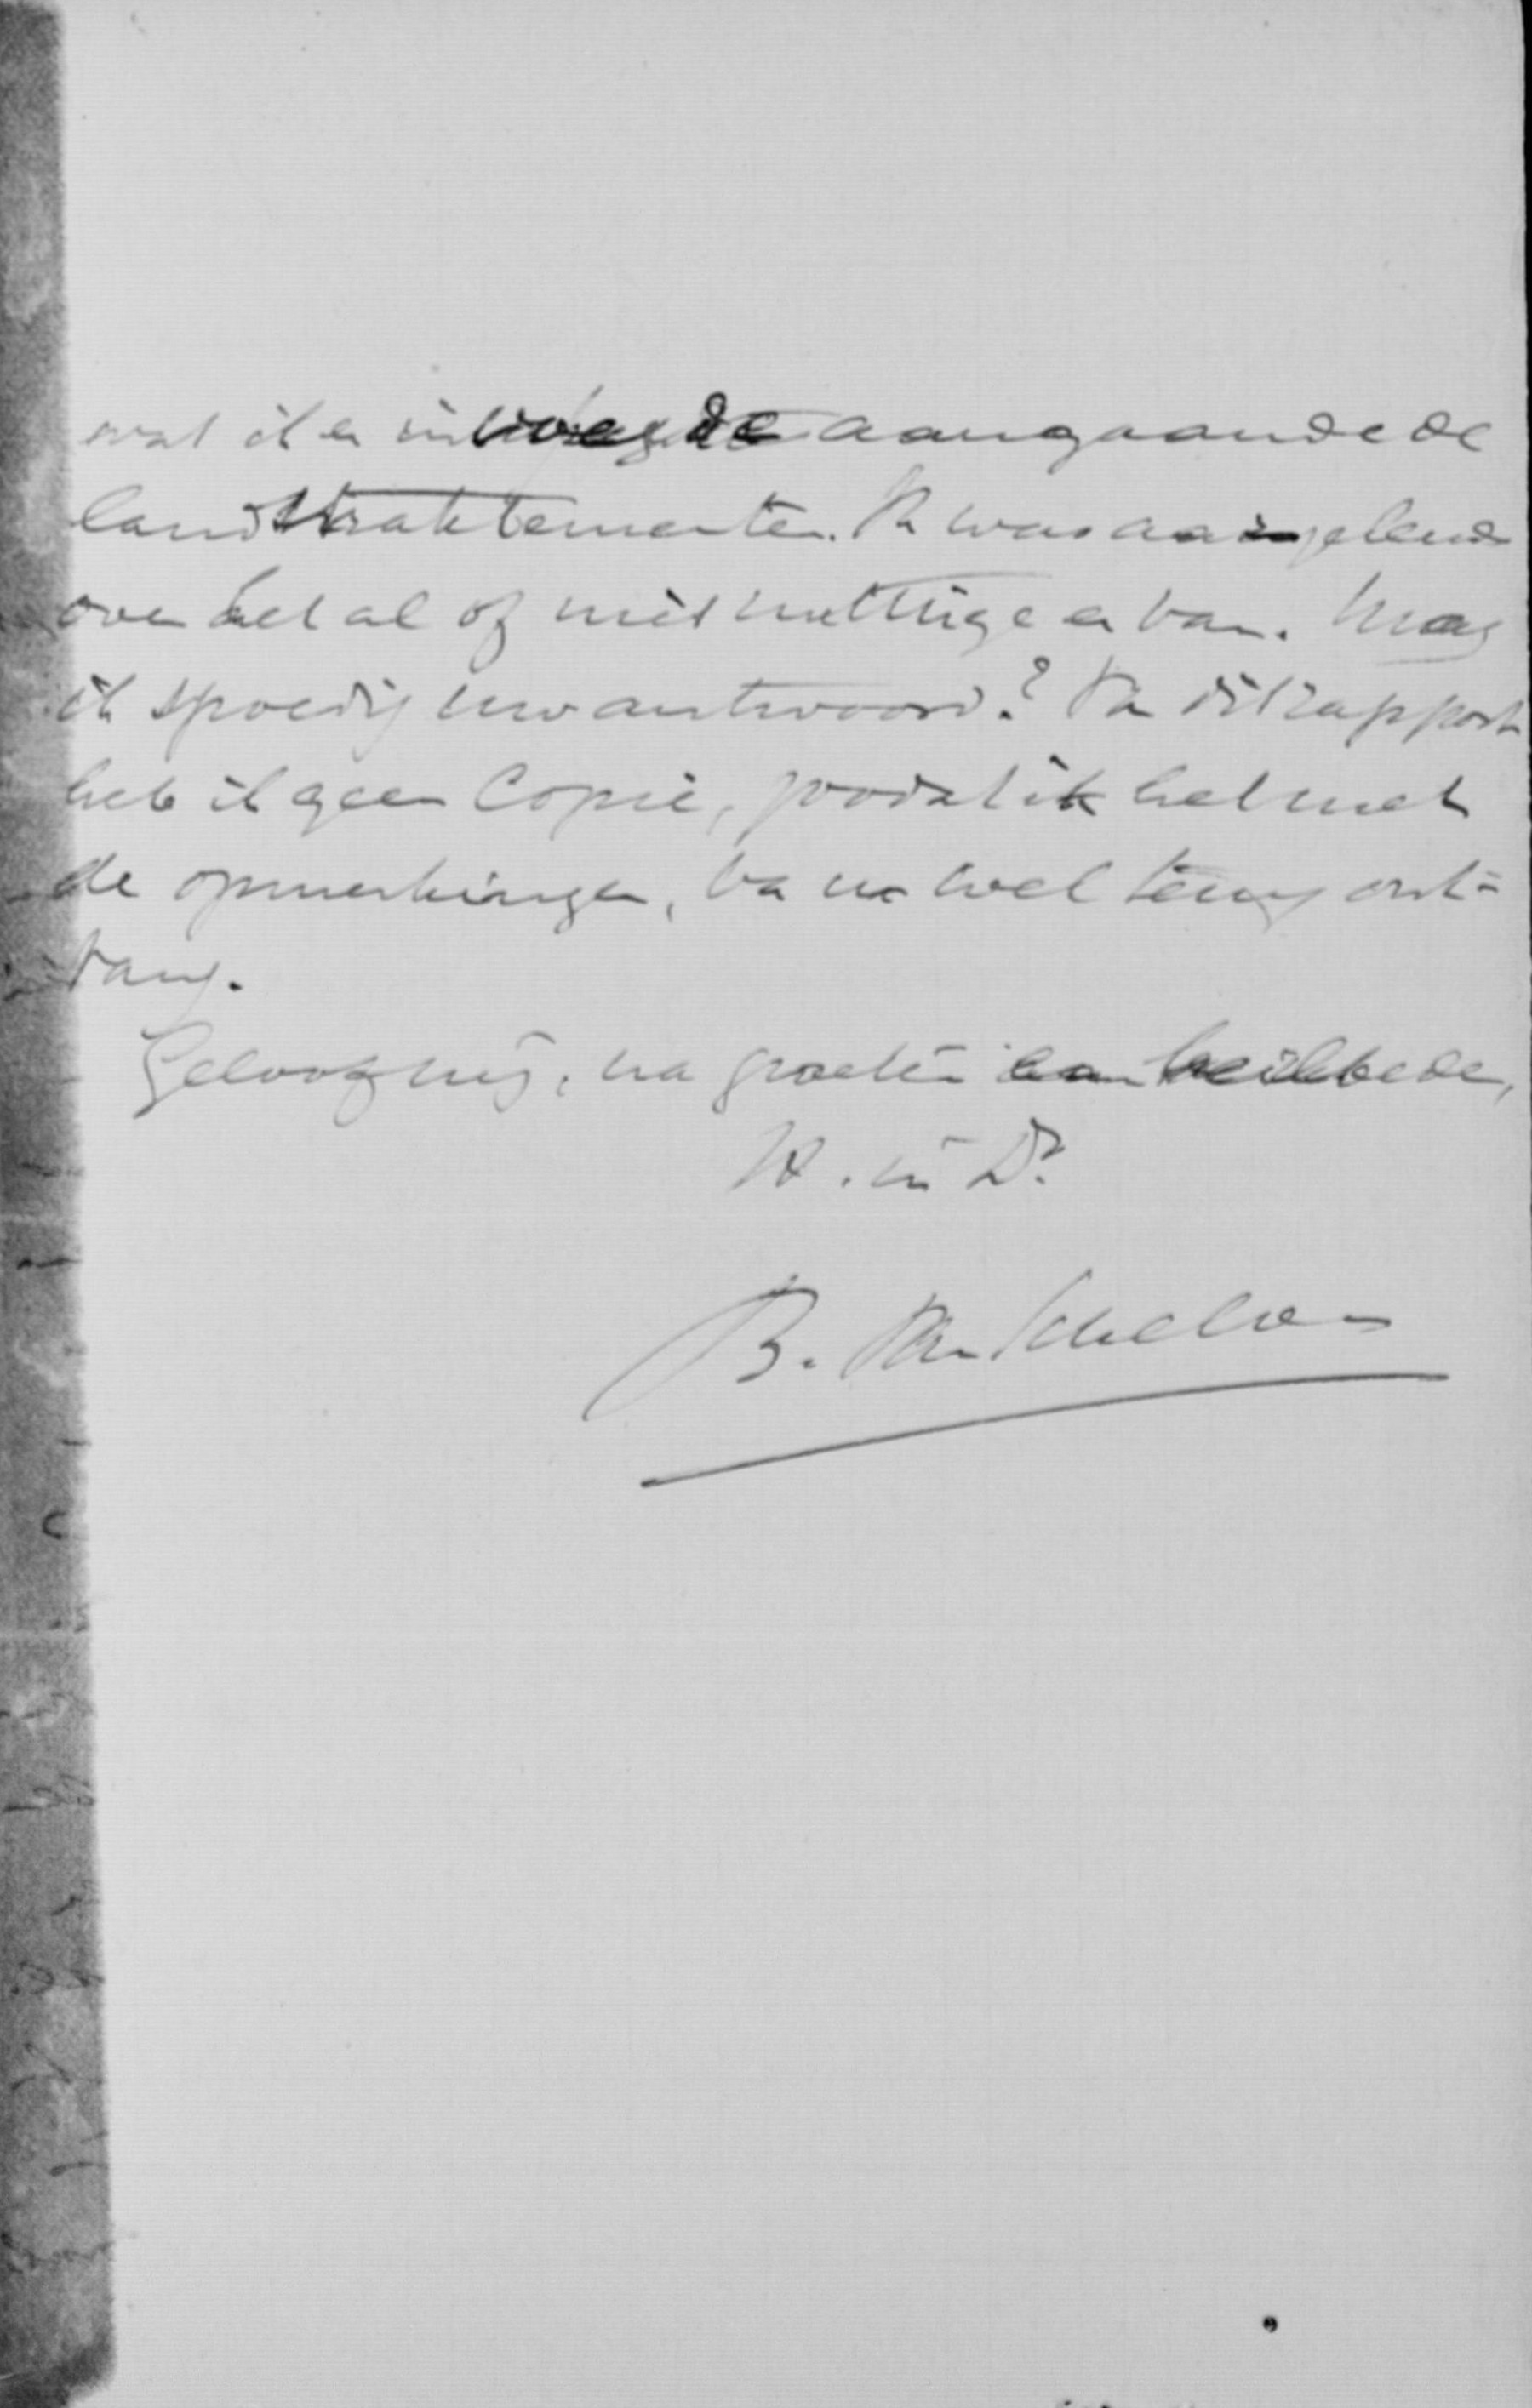 wat ik er invoegde aangaande de
landstraktementen. Ik was aarzelend
over het al of niet nuttige er van. Mag
ik spoedig uw antwoord? Van dit rapport
heb ik geen Copie, zoodat ik het met
de opmerkingen, van u wel terug ont-
vang.
Geloof mij, na groete en heilbede,
U. in Dº
B. van Schelven